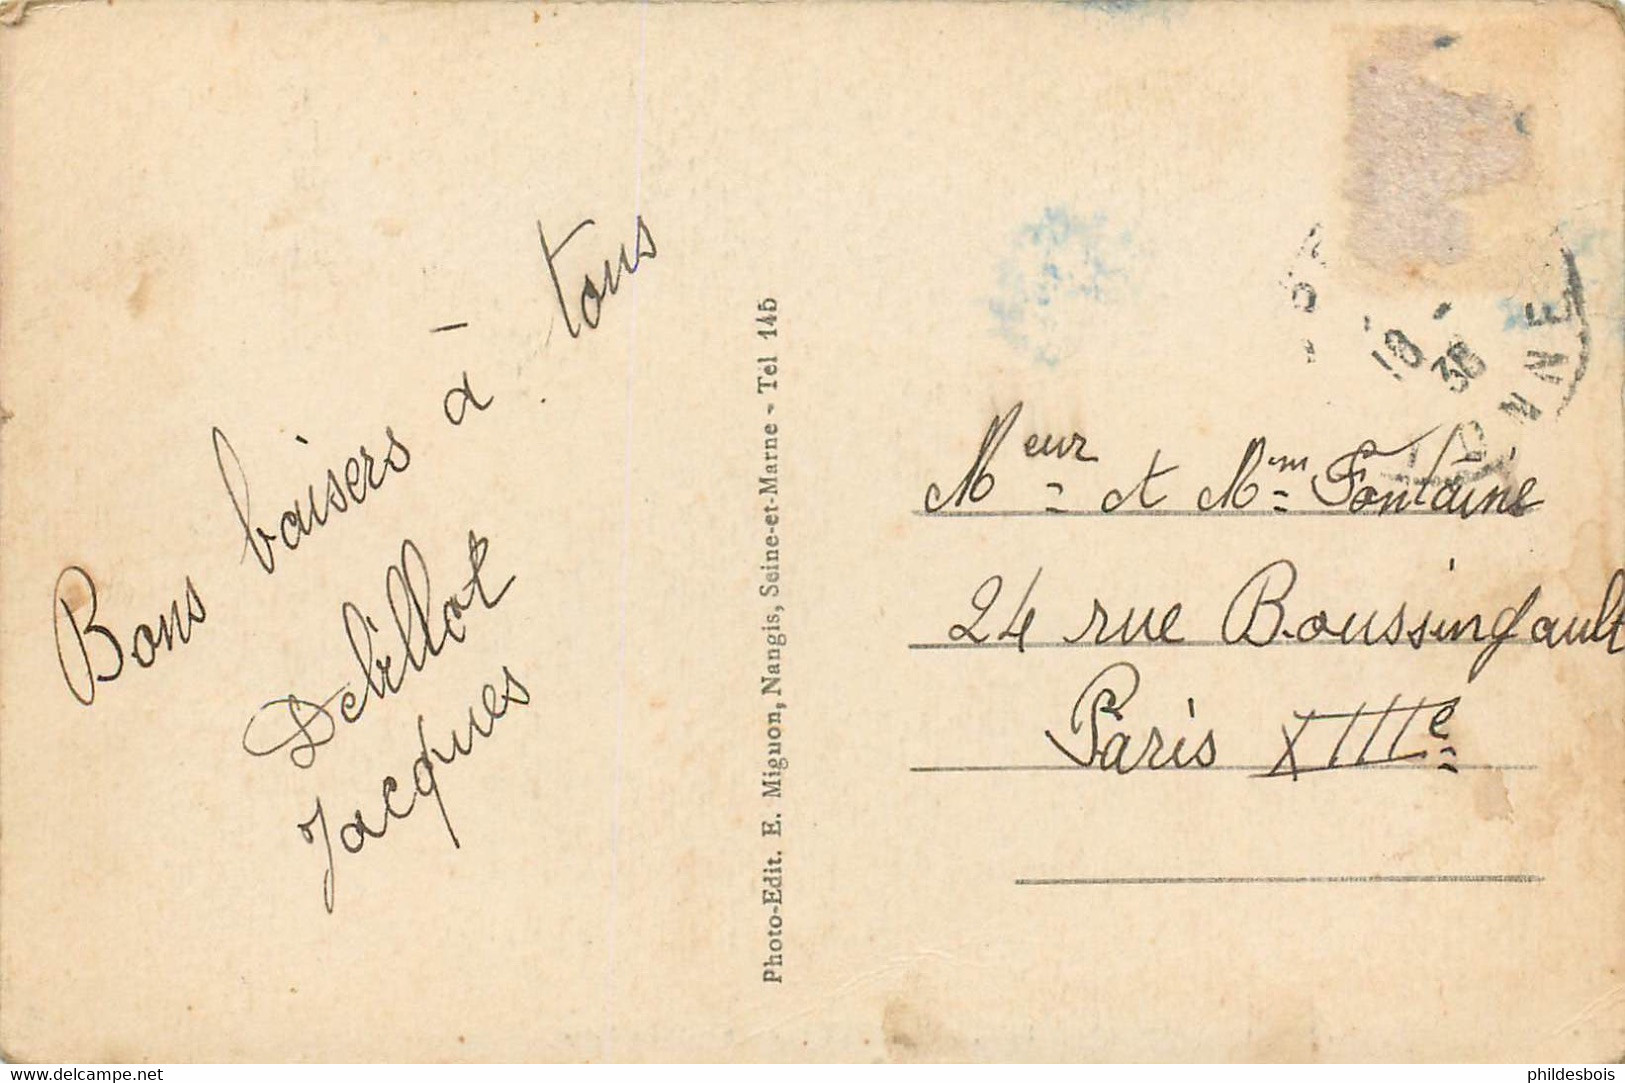 Bons baisers à tous
Debillot
Jacques
Photo-Edit. E. Mignon, Nangis, Seine-et-Marne - Tél 145
18
38
NNE
Meur et Mm Fontaine
24 rue Boussingault
Paris XIIIe
www.delcampe.net
phildesbois